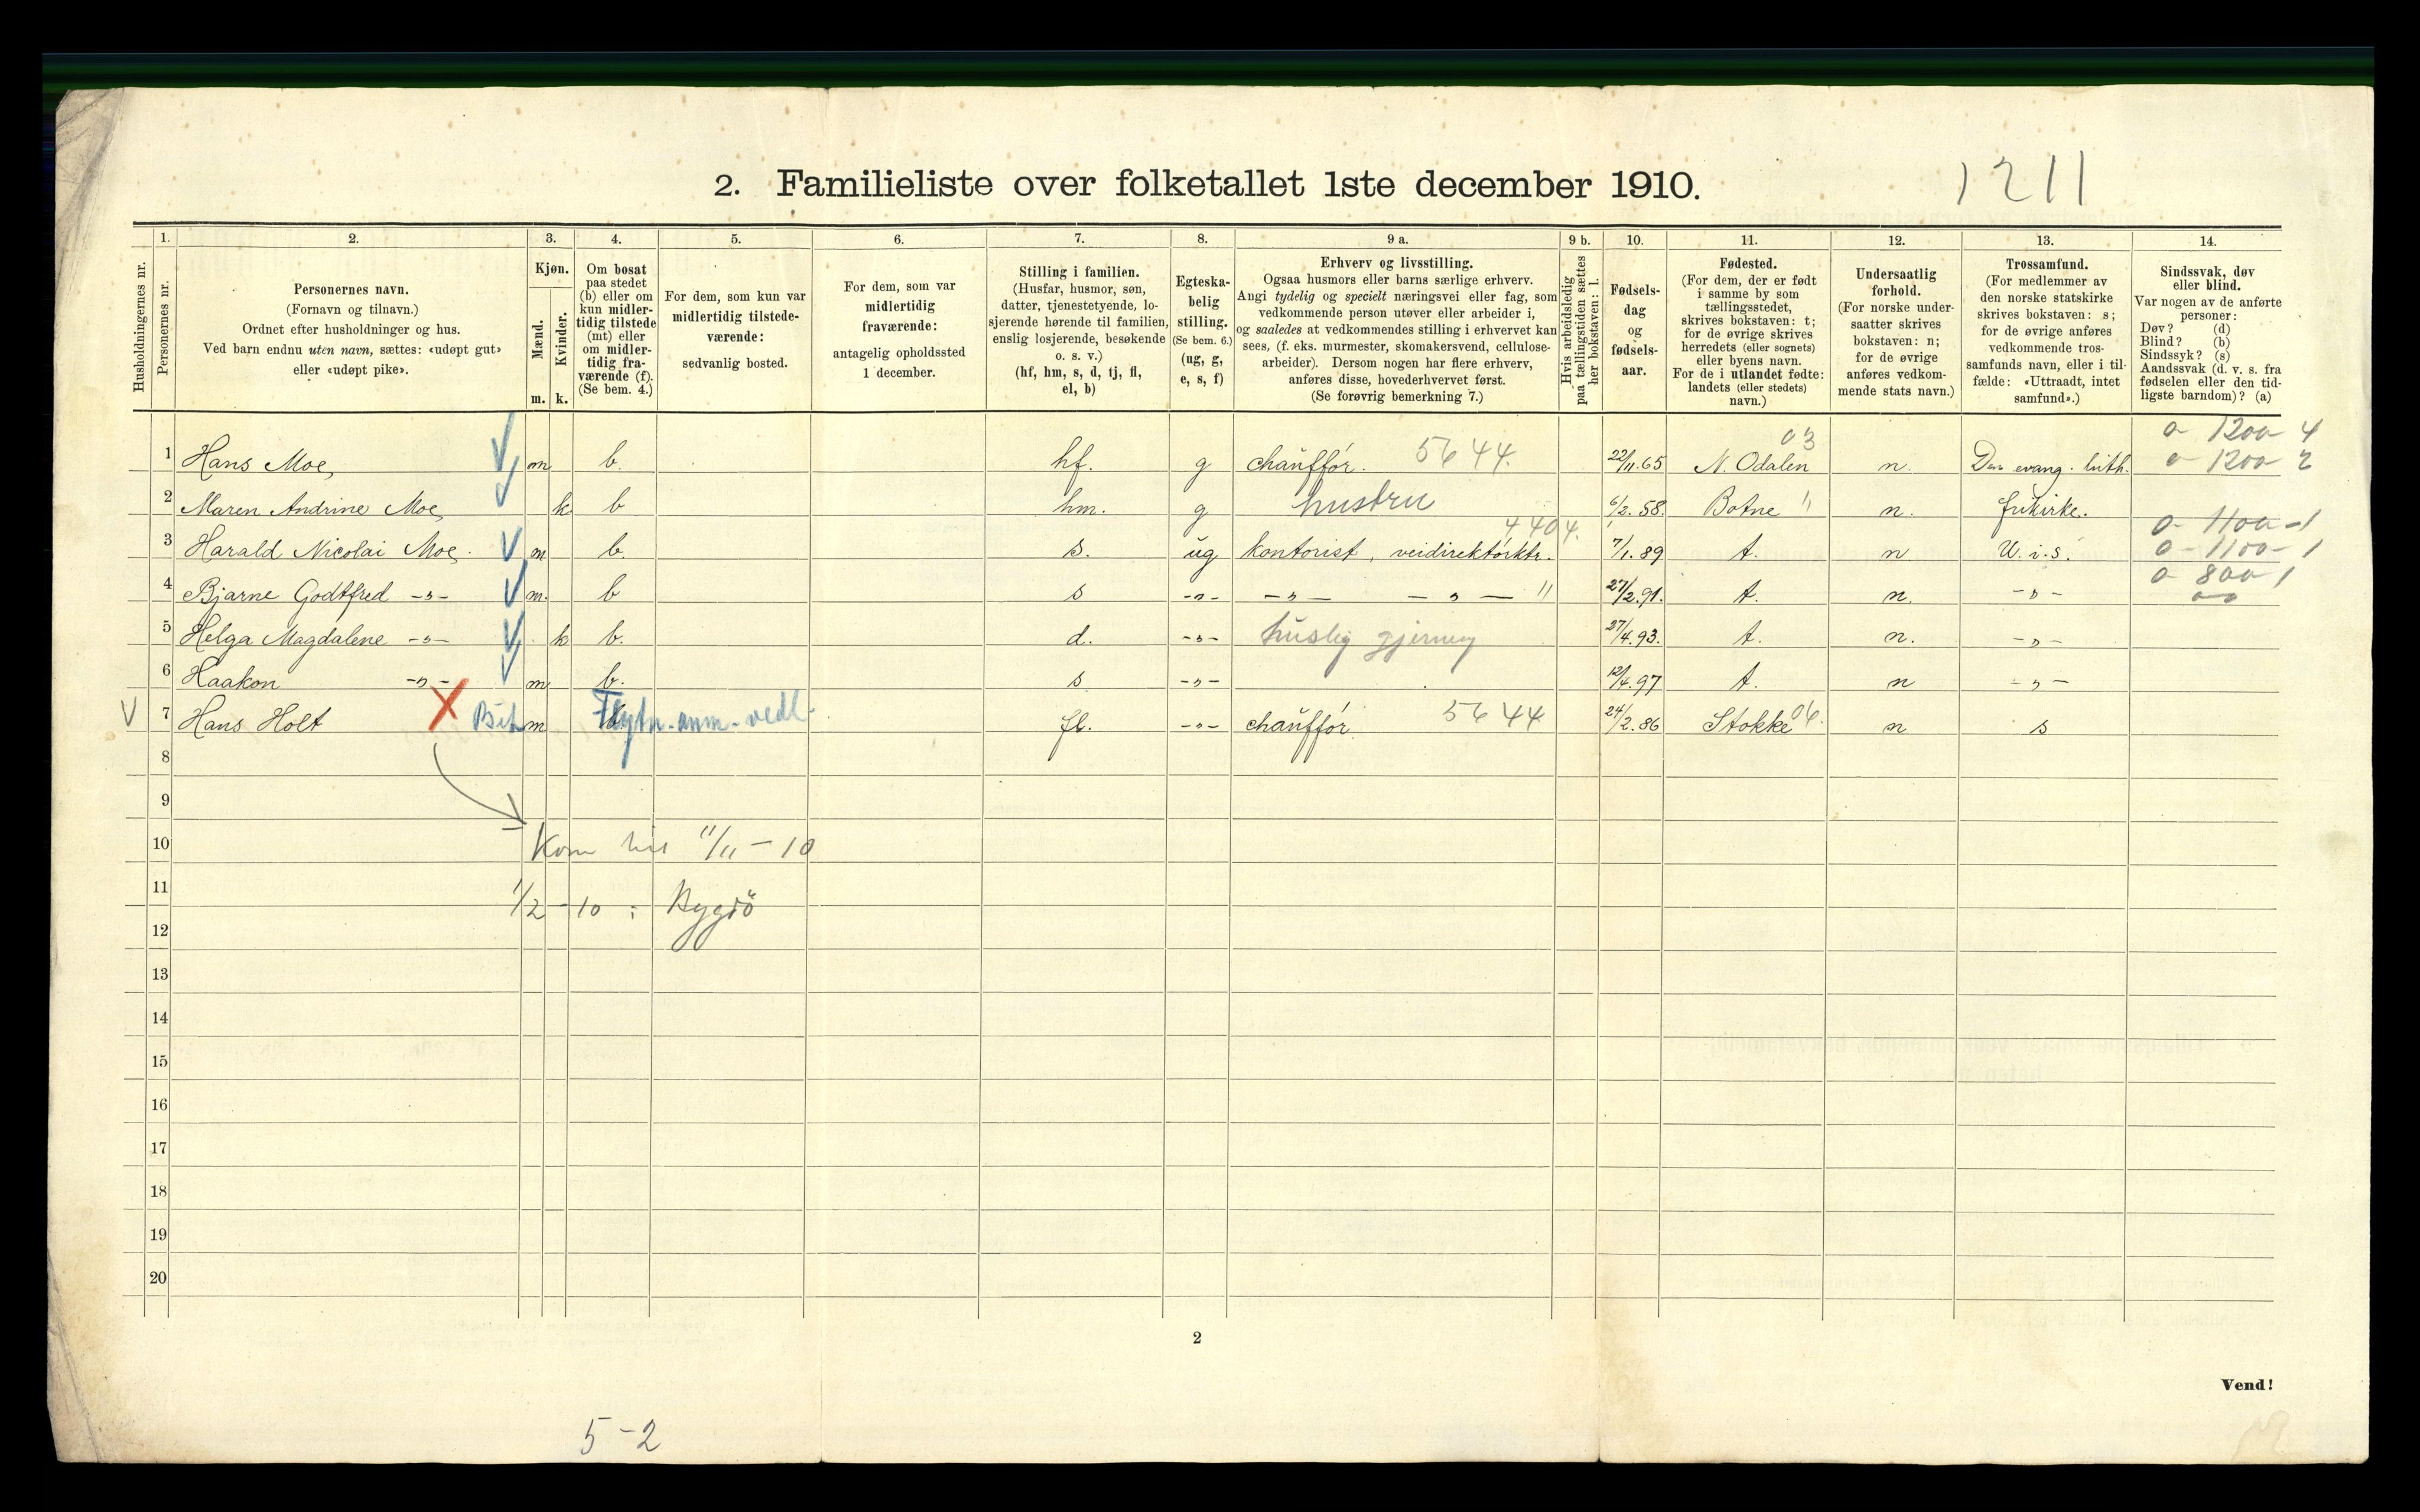 1211
2. Familieliste over folketallet 1ste december 1910.
1. 2. 3. 4. 5. 6. 7. 8. 9 a. 9 b. 10. 11. 12. 13. 14.
Husholdningernes nr.
Personernes nr.
Personernes navn.
(Fornavn og tilnavn.)
Ordnet efter husholdninger og hus.
Ved barn endnu uten navn, sættes: «udøpt gut»
eller «udøpt pike».
Kjøn.
Mænd.
Kvinder.
m. k.
Om bosat
paa stedet
(b) eller om
kun midler-
tidig tilstede
(mt) eller
om midler-
tidig fra-
værende (f).
(Se bem. 4.)
For dem, som kun var
midlertidig tilstede-
værende:
sedvanlig bosted.
For dem, som var
midlertidig
fraværende:
antagelig opholdssted
1 december.
Stilling i familien.
(Husfar, husmor, søn,
datter, tjenestetyende, lo-
sjerende hørende til familien,
enslig losjerende, besøkende
o. s. v.)
(hf, hm, s, d, tj, fl,
el, b)
Egteska-
belig
stilling.
(Se bem. 6.)
(ug, g,
e, s, f)
Erhverv og livsstilling.
Ogsaa husmors eller barns særlige erhverv.
Angi tydelig og specielt næringsvei eller fag, som
vedkommende person utøver eller arbeider i,
og saaledes at vedkommendes stilling i erhvervet kan
sees, (f. eks. murmester, skomakersvend, cellulose-
arbeider). Dersom nogen har flere erhverv,
anføres disse, hovederhvervet først.
(Se forøvrig bemerkning 7.)
Hvis arbeidsledig
paa tællingstiden sættes
her bokstaven: l.
Fødsels-
dag
og
fødsels-
aar.
Fødested.
(For dem, der er født
i samme by som
tællingsstedet,
skrives bokstaven: t;
for de øvrige skrives
herredets (eller sognets)
eller byens navn.
For de i utlandet fødte:
landets (eller stedets)
navn.)
Undersaatlig
forhold.
(For norske under-
saatter skrives
bokstaven: n;
for de øvrige
anføres vedkom-
mende stats navn.)
Trossamfund.
(For medlemmer av
den norske statskirke
skrives bokstaven: s;
for de øvrige anføres
vedkommende tros-
samfunds navn, eller i til-
fælde: «Uttraadt, intet
samfund».)
Sindssvak, døv
eller blind.
Var nogen av de anførte
personer:
Døv? (d)
Blind? (b)
Sindssyk? (s)
Aandssvak (d. v. s. fra
fødselen eller den tid-
ligste barndom)? (a)
03 0 1200 4
1 Hans Moe, m b. hf. g chauffør. 5644. 22/11.65 N. Odalen n. Den evang. luth. 0 1200 2
2 Maren Andrine Moe, k b hm. g hustru 6/2.58. Botne " n. frikirke.
4404. 0 1100 -1
3 Harald Nicolai Moe. m b. s. ug kontorist, veidirektørktr. 7/1.89 t. n U.i.s. 0 - 1100 - 1
0 800 1
4 Bjarne Godtfred -"- m. b s -"- -"- -"- " 27/2.91. t. n. -"-
5 Helga Magdalene -"- k b. d. -"- huslig gjerning 27/4.93. t. n. -"-
6 Haakon -"- m b. s -"- 12/4.97 t. n -"-
7 Hans Holt X m Flytn.anm. vedl. fl. -"- chauffør 5644 24/2.86 Stokke 06. n s
8
9
10 Kom hit 11/11 - 10
11 1/2 - 10 : Bygdö
12
13
14
15
16
17
18
19
20
2
Vend!
5-2